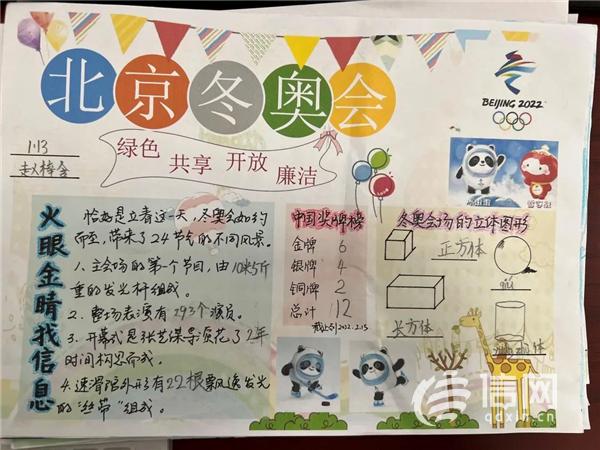 北京冬奥会
BEIJING 2022
1.13
绿色 共享 开放 廉洁
火眼金睛我信息
恰好是立春这一天,冬奥会如约
而至,带来了24节气的不同风景。
1.主会场的第一个节目,由10米5斤
重的发光杆组成。
2.曹场表演有293个演员。
3.开幕式是张艺谋导演花了2年
时间构思而成。
4.速滑馆外形有22根飘逸发光
的"丝带"组成。
中国奖牌榜
金牌 6
银牌 4
铜牌 2
总计 12
截止到2022.2.15
冬奥会场的立体图形
正方体
长方体
信网
qdxin.cn